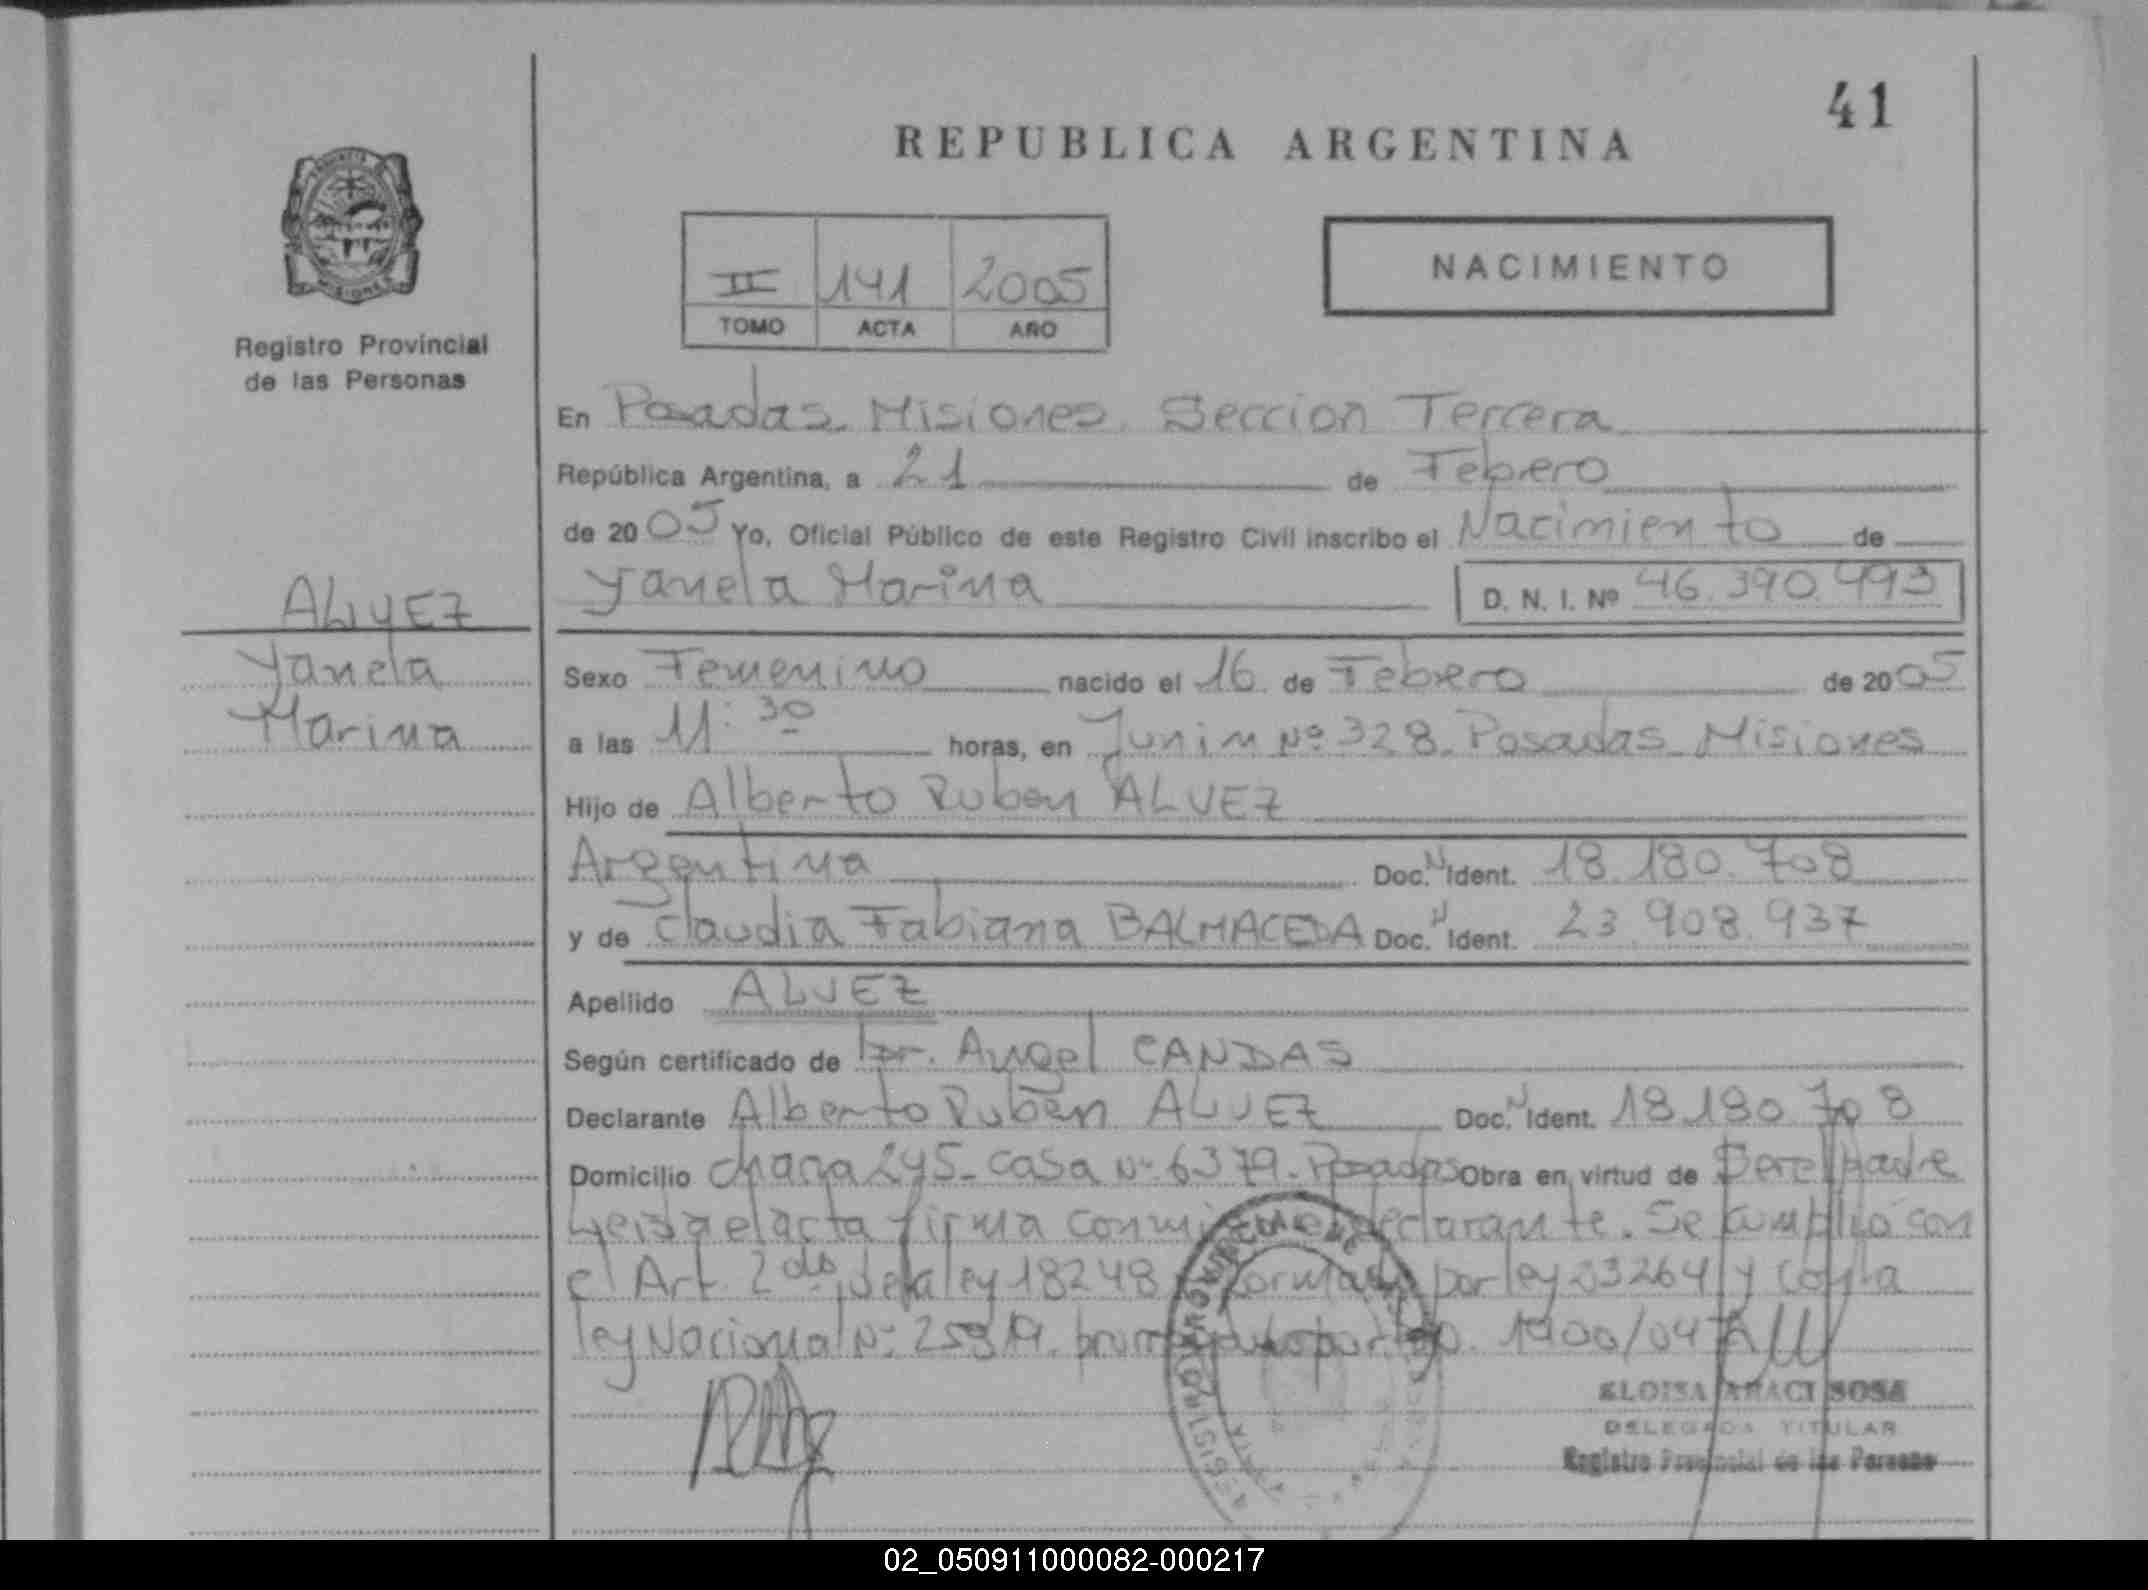 41
REPUBLICA ARGENTINA
PROVINCIA DE
MISIONES
Registro Provincial
de las Personas
II 141 2005
TOMO ACTA AÑO
NACIMIENTO
En Posadas. Misiones. Seccion Tercera
República Argentina, a 21 de Febrero
de 2005 Yo, Oficial Público de este Registro Civil inscribo el Nacimiento de
Yanela Marina D. N. I. Nº 46.390.493
ALVEZ
Yanela
Marina
Sexo Femenino nacido el 16 de Febrero de 2005
a las 11:30 horas, en Junin Nº 328. Posadas Misiones
Hijo de Alberto Ruben ALVEZ
Argentina Doc. N Ident. 18.180.708
y de Claudia Fabiana BALMACEDA Doc. N Ident. 23.908.937
Apellido ALVEZ
Según certificado de Dr. Angel CANDAS
Declarante Alberto Ruben ALVEZ Doc. N Ident. 18.180.708
Domicilio chacra 245. casa Nº 6379. Posadas Obra en virtud de Ser el padre
Leida el acta firma conmigo el declarante. Se cumplio con
el Art. 2do de la ley 18248 por ley 23264 y con la
ley Nacional Nº 25819. 1900/04
ELOISA ARACI SOSA
DELEGADA TITULAR
Registro Provincial de las Personas
02_050911000082-000217